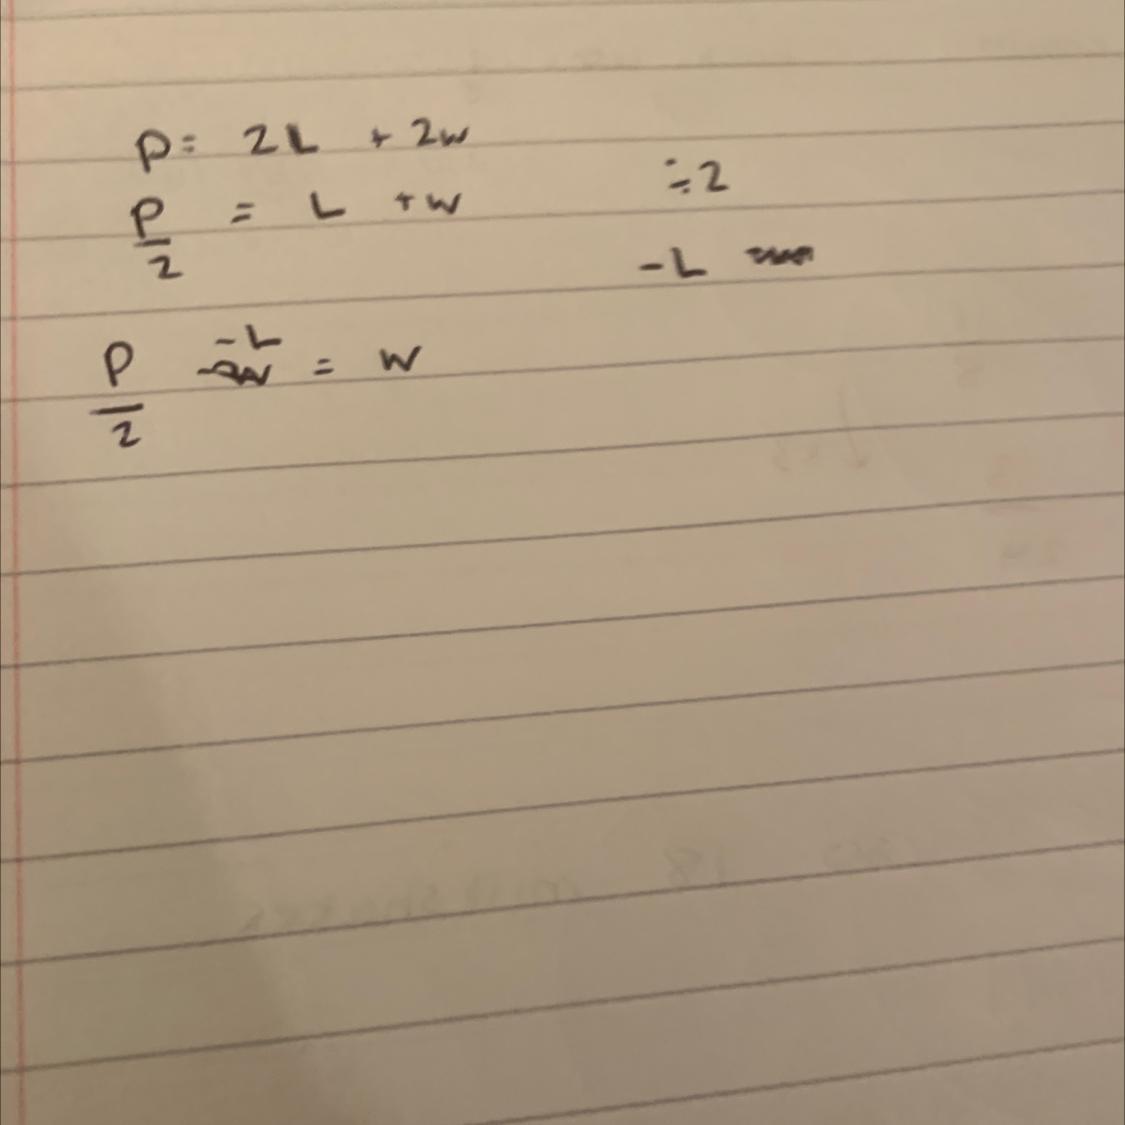 P = 2L + 2w
P/2 = L + w ÷2
-L
P/2 -L = w